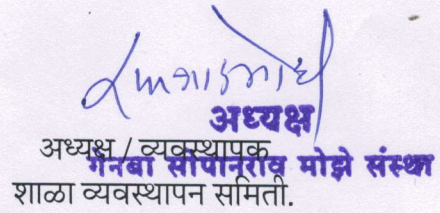 अध्यक्ष
अध्यक्ष / व्यवस्थापक
गेनबा सोपानराव मोझे संस्था
शाळा व्यवस्थापन समिती.